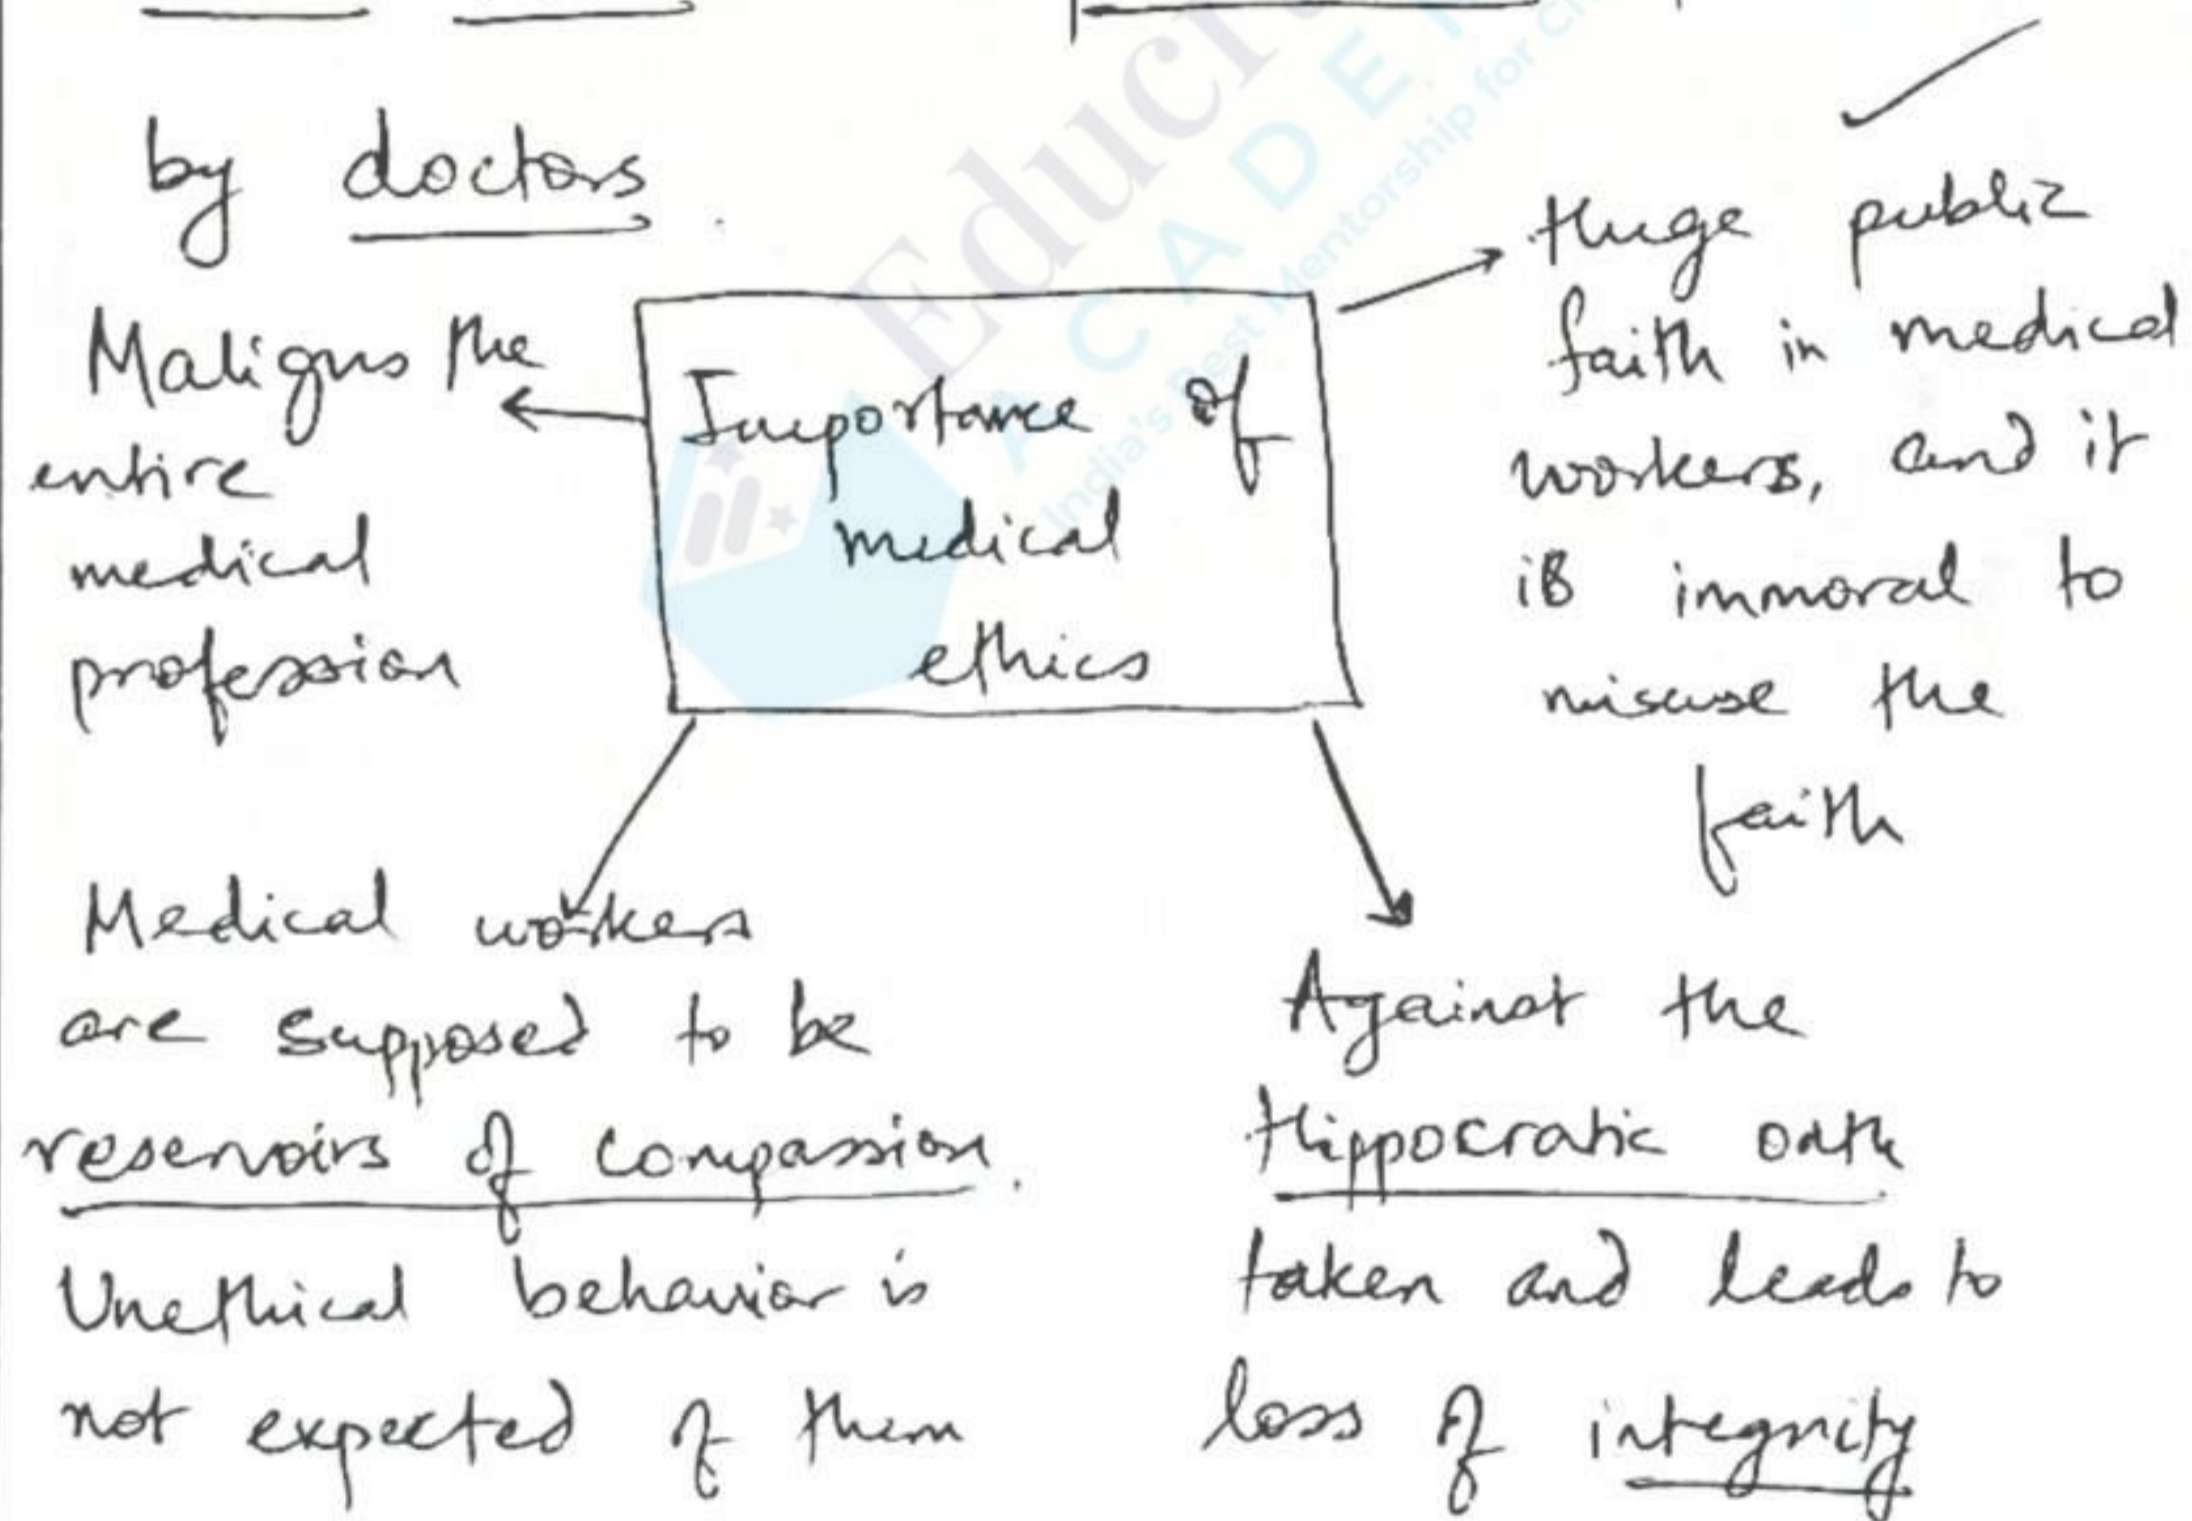 by doctors.
Maligns the
entire
medical
profession
Importance of
medical
ethics
Huge public
faith in medical
workers, and it
is immoral to
misuse the
faith
Medical workers
are supposed to be
reservoirs of compassion.
Unethical behavior is
not expected of them
Against the
Hippocratic oath
taken and leads to
loss of integrity
Educr
ACADE
India's Best Mentorship for